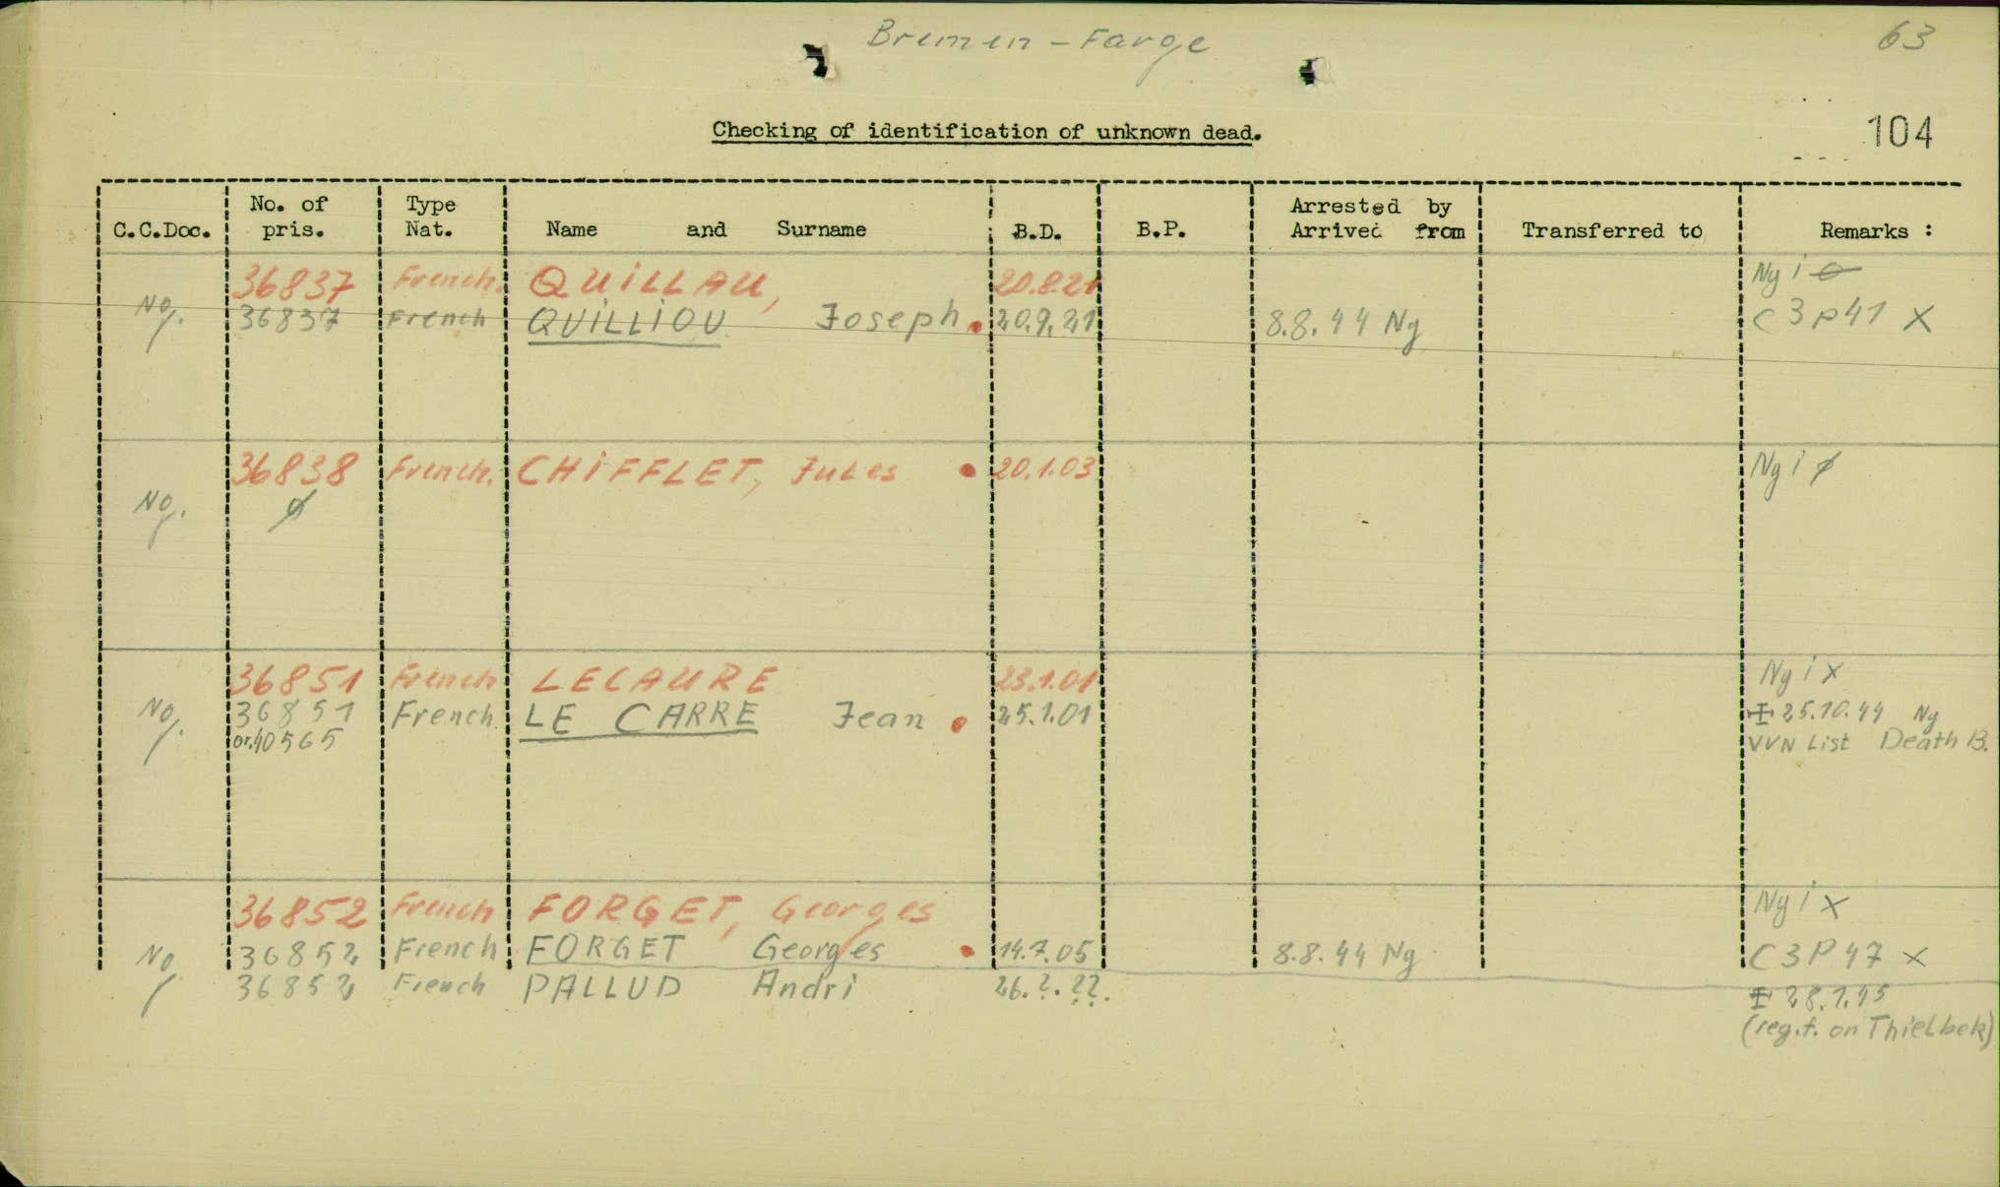 Bremen - Farge
63
Checking of identification of unknown dead.
104
C.C.Doc. No. of pris. Type Nat. Name and Surname B.D. B.P. Arrested by Arrived from Transferred to Remarks :
36837 French. QUILLAU, 20.8.21 Ng i
No. 36837 French QUILLIOU Joseph. 20.9.21 8.8.44 Ng C3P41 X
36838 French. CHIFFLET, Jules 20.1.03 Ng i ø
No. ø
36851 French LECAURE 23.1.01 Ng i x
No. 36851 French LE CARRE Jean 25.1.01 25.10.44 Ng
or.40565 VVN List Death B.
36852 French FORGET, Georges Ng i x
No 36852 French FORGET Georges 14.7.05 8.8.44 Ng C3P47 x
36852 French PALLUD Andri 26.?.??. 28.1.45
(reg.f. on Thielbek)